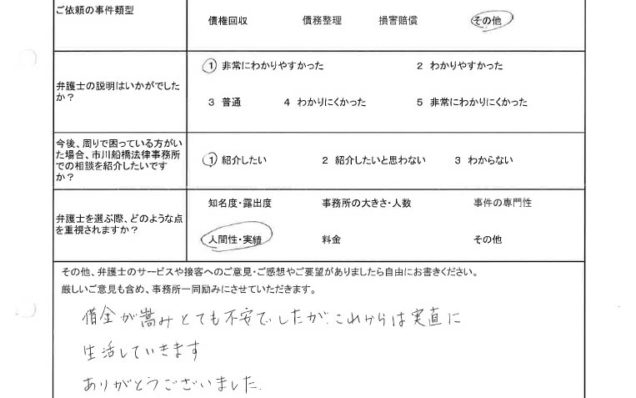 ご依頼の事件類型
債権回収 債務整理 損害賠償 その他
弁護士の説明はいかがでしたか？
1 非常にわかりやすかった 2 わかりやすかった
3 普通 4 わかりにくかった 5 非常にわかりにくかった
今後、周りで困っている方がいた場合、市川船橋法律事務所での相談を紹介したいですか？
1 紹介したい 2 紹介したいと思わない 3 わからない
弁護士を選ぶ際、どのような点を重視されますか？
知名度・露出度 事務所の大きさ・人数 事件の専門性
人間性・実績 料金 その他
その他、弁護士のサービスや接客へのご意見・ご感想やご要望がありましたら自由にお書きください。
厳しいご意見も含め、事務所一同励みにさせていただきます。
借金が嵩みとても不安でしたが、これからは実直に
生活していきます
ありがとうございました。